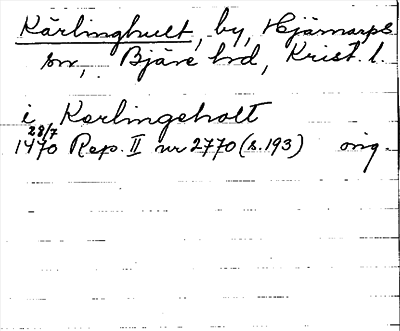 Kärlinghult, by, Hjärnarps
sn, Bjäre hd, Krist. l.
i Kerlingeholt
28/7
1470 Rep. II nr 2770 (s. 193) orig.